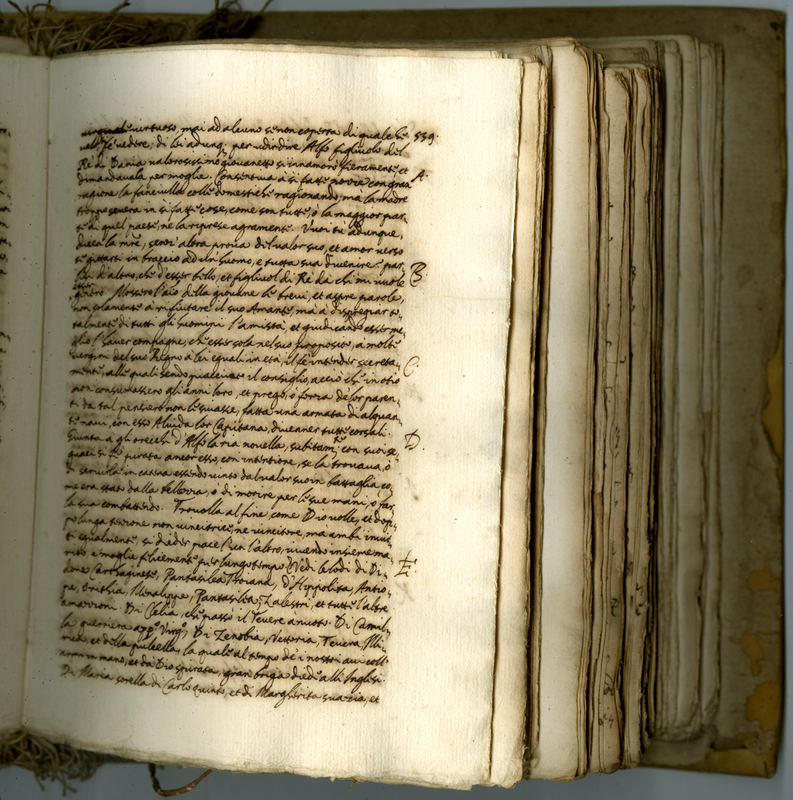 virtuoso, mai ad alcuno se non coperta di quale si 539.
vedere; di lei adunq; per udir dire Alfo figliuolo del
Rè di Dania valorosissimo giovanetto s'innamorò fieramente, et
dimandavala per moglie. Consentiva à sì fatte nozze con gran A.
ragione la fanciulla colle domestiche ragionando, mà la madre
troppo severa in sì fatte cose, come son tutte, ò la maggior par-
te di quel paese, ne la riprese agramente. Vuoi tù adunque,
diceva la mre, senz'altra prova di valor suo, et amor verso
te gittarti in braccio ad un huomo, e tutta sua divenire par-
d'altro, che d'esser bello, et figliuol di Rè dà chi mi vuole B.
genero. Mossero l'aio della giovane le brevi, et aspre parole,
non solamente à rifiutare il suo Amante, mà à dispregiar to-
talmente di tutti gli huomini l'amistà, et giudicando esser me-
glio l'haver compagne, che esser sola nel suo proposito, à molte
vergini del suo Regno à lei eguali in età, il fè intender secreta- C.
mente, alle quali sendo piacciuto il consiglio, acciò che in otio
non consumassero gli anni loro, et prego, o forza de lor paren-
ti da tal pensiero non le svasse, fatta una armata di alquan-
te navi, con esso Aluida lor Capitana, divenner tutte corsali.
Giunta à gli orecchi d'Alfo la ria novella, subitamte con suoi se- D.
guaci si fè pirata ancor esso, con intentione, se la trovava, ò
di servirla in catena essendo vinto dal valor suo in battaglia, co-
me era stato dalla bellezza, ò di morire per le sue mani, ò far-
la sua combattendo. Trovolla al fine come Dio volle, et dop-
po lunga tenzone non vincitrice, ne vincitore, mà ambi invit-
ti egualmente, si dieder pace l'un l'altro, vivendo insieme ma-
rito, e moglie felicemente per lungo tempo. Vedi le lodi di Di- E.
done Carthaginese, Pantasilea Troiana, d'Hippolita, Antio-
pe, Orithia, Menalippe, Pantasilea, Zalestri, et tutte l'altre
amazzoni. Di Clelia, che passò il Tevere a nuoto. Di Camil-
la guerriera appo Virgo; Di Zenobia, Vettoria, Teuca, Illi-
rica, et della pulcella, la quale al tempo de i nostri avi coll'
armi in mano, et da Dio spirata, gran briga diede alli Inglesi.
Di Maria sorella di Carlo quinto, et di Margherita sua zia, et